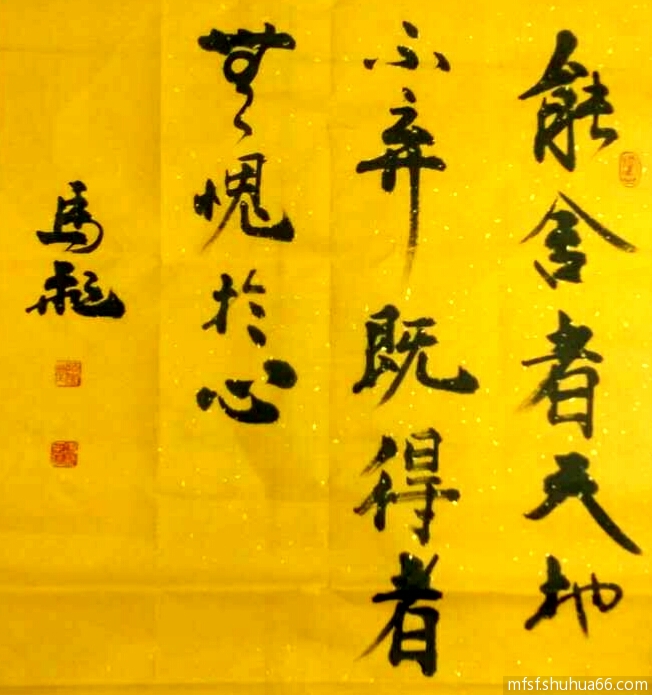 能舍者天地
不弃既得者
無愧於心
馬
mfsfshuhua66.com